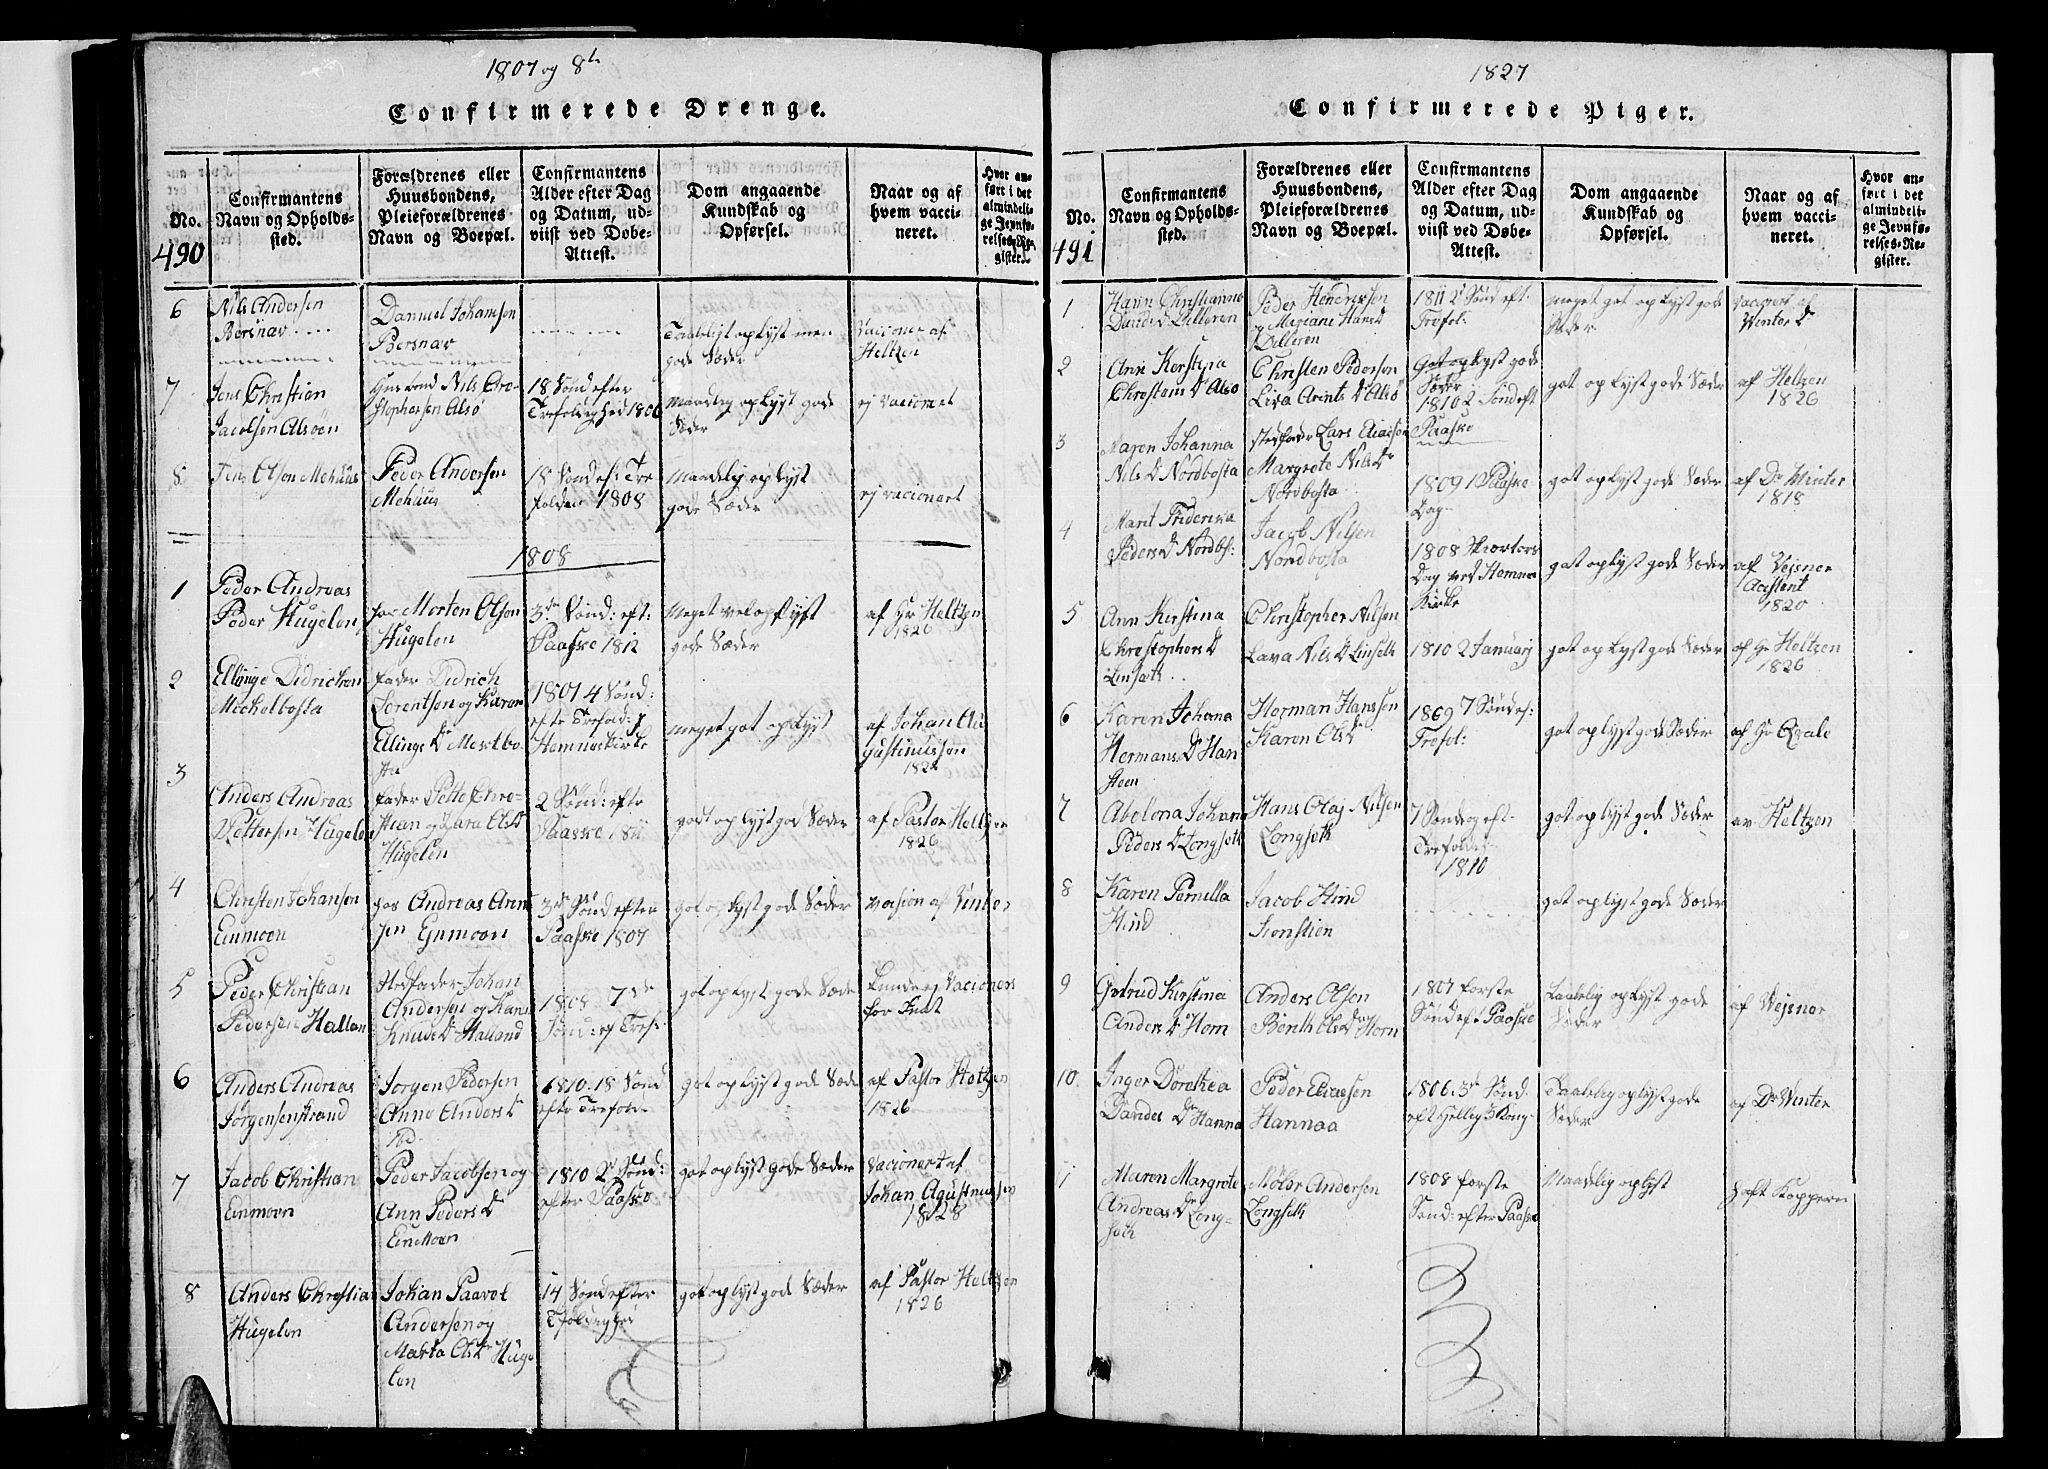 1807 og 8de
Confirmerede Drenge.
No.
490
Confirmantens
Navn og Opholds-
sted.
Forældrenes eller
Huusbondens,
Pleieforældrenes
Navn og Boepæl.
Confirmantens
Alder efter Dag
og Datum, ud-
viist ved Døbe-
Attest.
Dom angaaende
Kundskab og
Opførsel.
Naar og af
hvem vacci-
neret.
Hvor an-
ført i det
almindeli-
ge Jevnfø-
relses-Re-
gister.
6
Nils Andersen
Bersnav
Daniel Johansen
Bersnav
Taaleligt oplyst men
gode Sæder
Vacioner af
Heltzen
7
Jens Christian
Jacobsen Alsøen
Husbond Nils Cro-
stophersen Alsø
18 Sønd efter
Trefoldighed 1806
Maadelig oplyst gode
Sæder
ej vacionet
8
Jens Olsen Mehuus
Peder Andersen
Mehuus
18 Sønd ef: Tre
folden 1808
Maadelig oplyst
gode Sæder
ej vacioneret
1808
1
Peder Andreas
Peder Hugelen
for Morten Olsen
Hugelen
3de Sønd: eft:
Paaske 1812
Meget vel oplyst
gode Sæder
af Hr Heltzen
1826
2
Ellinge Didrichsen
Mechelbosta
fader Didrich
Lorentsen og Karen
Ellings Dr Meselbo-
sta
1807 4 Sønd:
efte Trefold: i
Hemneskirke
meget got oplyst
af Johan Au
gustinussen
182
3
Anders Andreas
Pettersen Hugelen
fader Pette Chre-
stian og Sara Olsd
Hugelen
2 Sønd: efte
Paaske 1811
godt oplyst god Sæder
af Pastor Heltzen
1826
4
Christen Johansen
Einmoen
hos Andreas Arent
sen Ejnmoen
3de Sønd efter
Paaske 1807
got oplyst gode Sæder
vacion af Vinter
5
Peder Christian
Pedersen Hallan
Stedfader Johan
Andersen og Karen
Knuds Dr Halland
1808 7de
Sønd: ef Tref:
got oplyst gode Sæde
for
6
Anders Andreas
Jørgensen strand
Jorgen Pedersen
Anne Anders D
ibd.
1810. 18 Sønd
efte Trefold:
got oplyst gode Sæde
af Pastor Heltzen
1826
7
Jacob Christian
Einmoen
Peder Jacobsen og
Ann Peders D
Einmoen
1810 2d Sønd:
efter Paaske
got oplyst gode Sæder
Vacionert af
Johan Agustinusen
1828
8
Anders Christian
Hugelen
Johan Paavel
Andersen og
Marta Olsdr Huge
len
14 Sønd efter
Trfoldighei
got oplyst gode Sæder
af Pastor Heltzen
1826
1827
Confirmerede Piger.
No.
491
Confirmantens
Navn og Opholds-
sted.
Forældrenes eller
Huusbondens,
Pleieforældrenes
Navn og Boepæl.
Confirmantens
Alder efter Dag
og Datum, ud-
viist ved Døbe-
Attest.
Dom angaaende
Kundskab og
Opførsel.
Naar og af
hvem vacci-
neret.
Hvor an-
ført i det
almindeli-
ge Jevnfø-
relses-Re-
gister.
1
Peder Hendriksen
1811 2 Sønd eft:
Trefol:
meget got oplyst gode
Sæder
Vacioners af
Winter
2
Ann Kerstina
Christens Dr Alsø
Christen Pedersen
Liva Arints Dr Alsø
Got oplyst gode
Sæder
1810 2 Sønd eft
Paaske
got oplyst gode Sæder
af Heltzen
1826
3
Maren Johanna
Nils Dr Nordbosta
Stedfader Lars Eliassen
Margrete Nils Dr
Nordbosta
1809 1 Paaske
Dag
got oplyst gode Sæder
af Dr Winter
1818
4
Marit Friderica
Peders Dr Nordbs:
Jacob Nilsen
Nordbosta
1808 Skiærtors
Dag ved Hemnes
Kirke
got oplyst gode Sæder
af Vejsner
Acistent
1820
5
Ann Kirstina
Christophers D
Linseth
Christopher Nilsen
Lava Nils Dr Linseth
1810 2 Januarj
got oplyst gode Sæder
af Hr Heltzen
1826
6
Karen Johana
Hermans Dr Han
steen
Herman Hanssen
Karen Olsdr
1809 7 Søndef:
Trefol:
got oplyst gode Sæder
af Hr Qvale
7
Abelona Johana
Peders Dr Longseth
Hans Olaj Nilsen
Longseth
7 Sondag eft-
Trefold:
1810
got oplyst gode Sæder
av Heltzen
8
Karen Pernilla
Hind
Jacob Hind
got oplyst gode Sæder
9
Gertrud Kirstina
Anders Dr Horn
Anders Olsen
Bereth Ols Dr Horn
1807 forste
Sønd eft Paaske
Taalelig oplyst gode
Sæder
af Vejsner
10
Inger Dorethea
Peder Eliasen
Hannaa
1806. 3d Sønd.
eft Hellig 3 Kong-
Taalelig oplyst gode
Sæder
af Dr Vinter
1
Maren Margrete
Andreas Dr Long-
seth
Andersen
Longseth
1808 forste
Sønd: efter Paaske
Maadelig oplyst
haft Koppern